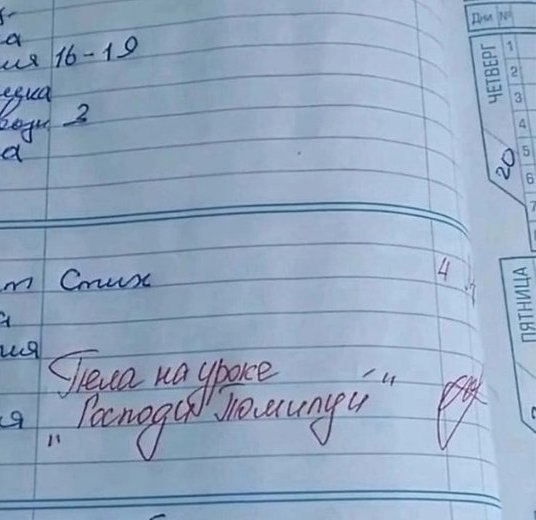 а
ия 16-19
2
а
Стих 4
ия
Пела на уроке
„Господи Помилуй"
я
Дни №
ЧЕТВЕРГ
20
1
2
3
4
5
6
7
ПЯТНИЦА